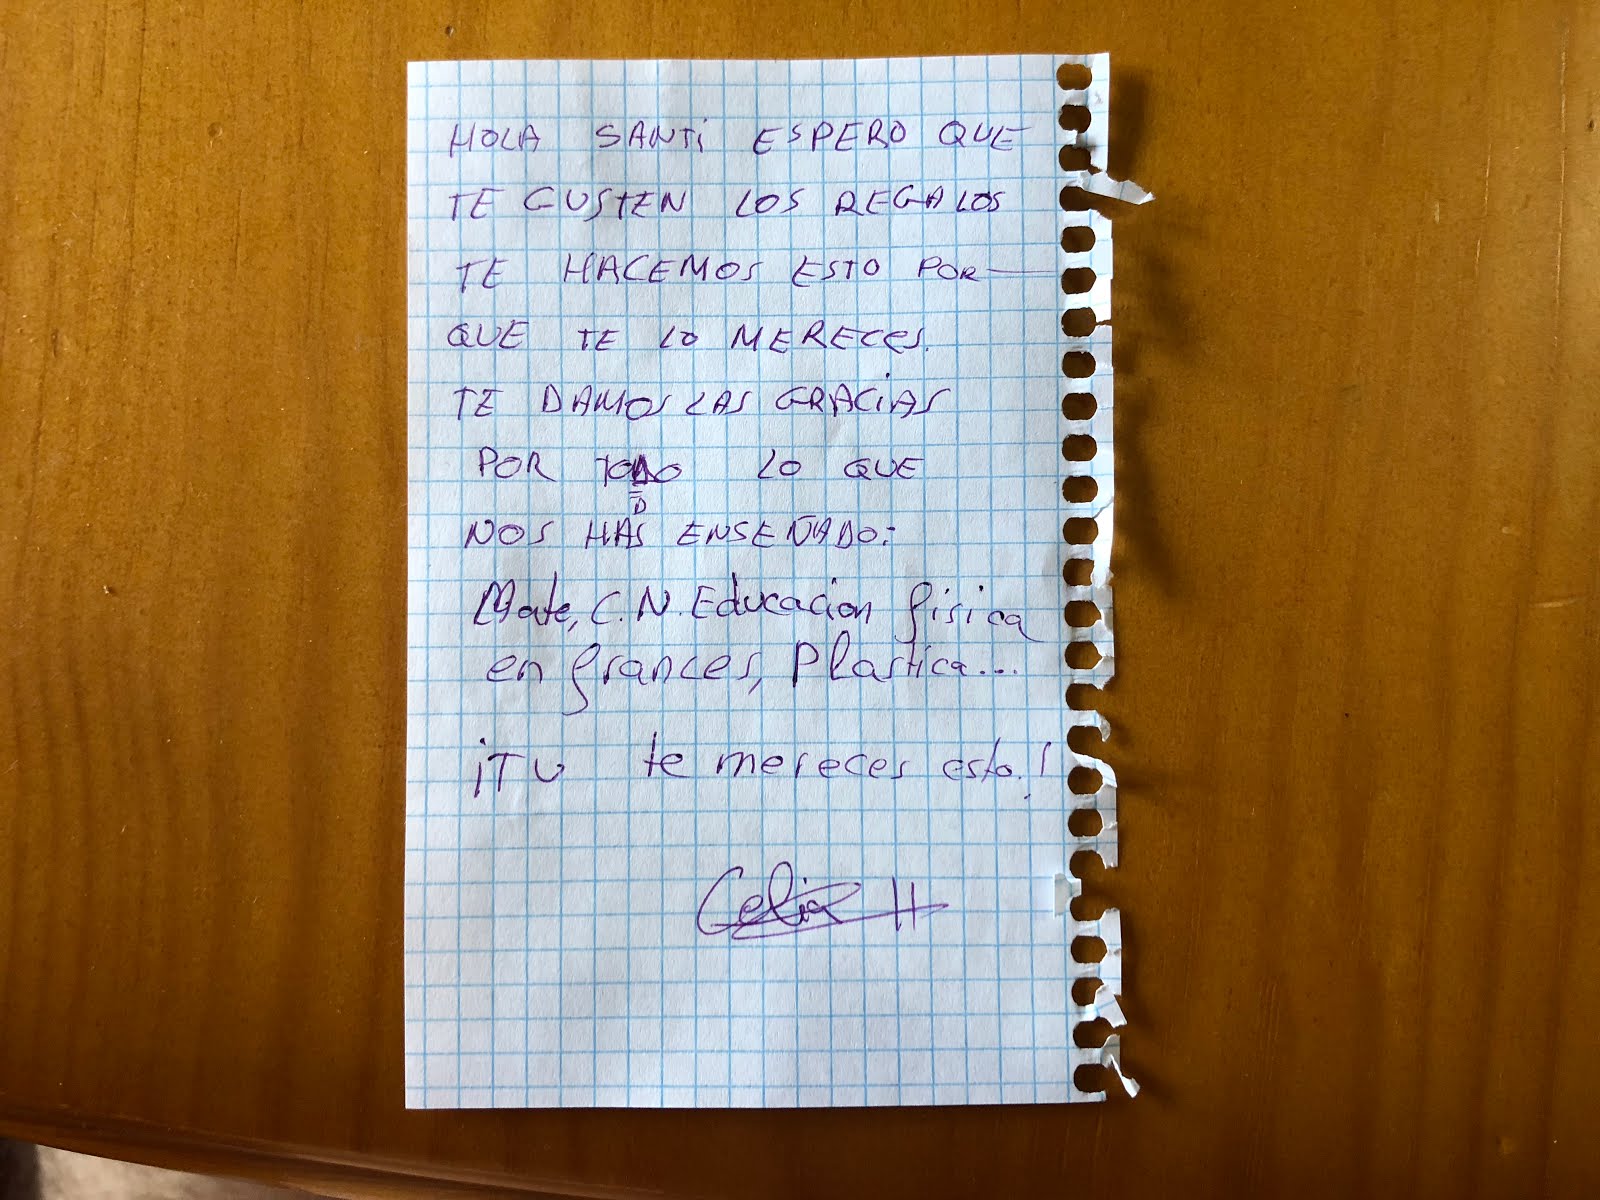 HOLA SANTi ESPERO QUE
TE GUSTEN LOS REGALOS
TE HACEMOS ESTO POR—
QUE TE LO MERECES.
TE DAMOS LAS GRACiAS
POR TODO LO QUE
D
NOS HAS ENSEÑADO:
Mate, C.N. Educacion fisica
en frances, Plastica...
¡TU te mereces esto.!
Celia H